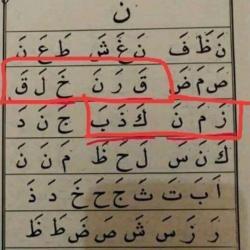 نَ
نَظَفَ نَغَشَ طَعَنَ
صَمَضَ قَرَنَ خَلَقَ
زَمَنَ كَذَبَ جَنَدَ
كَنَسَ لَحَظَ مَنَنَ
اَبَتَثَجَحَخَدَذَ
رَزَسَشَصَضَطَظَ